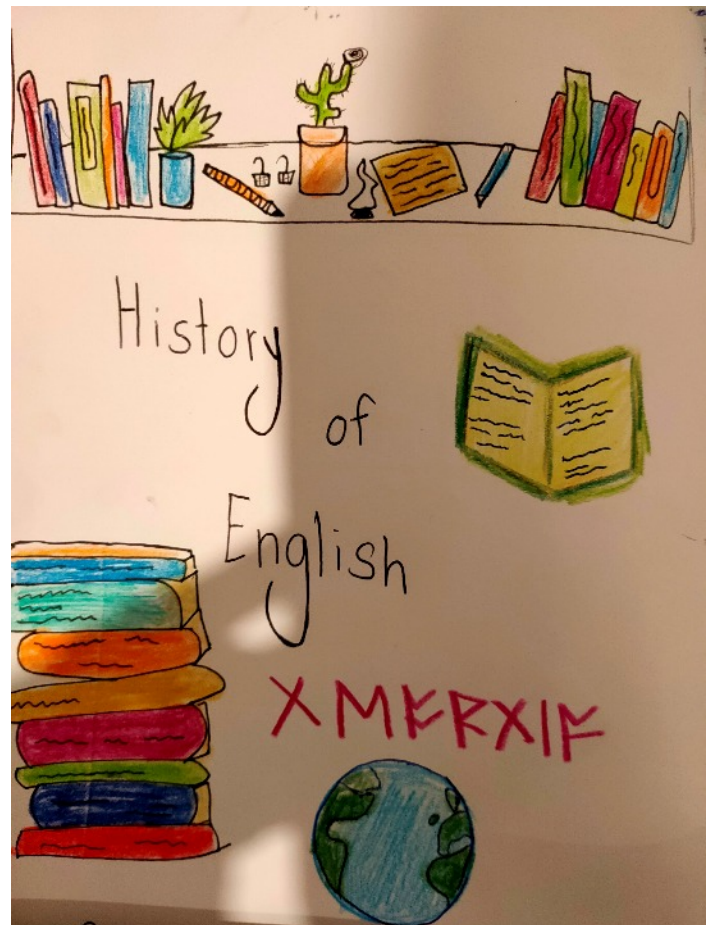 History
of
English
ᚷᛖᚩᚱᚷᛁᚪ